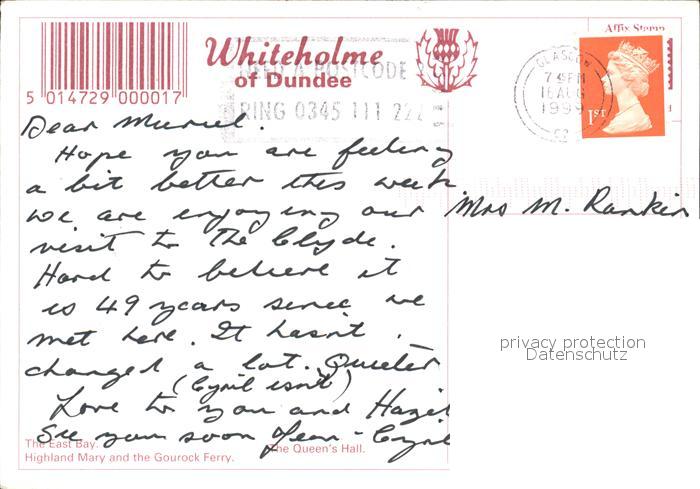 Whiteholme
of Dundee
5 014729 000017
NEED A POSTCODE
RING 0345 111 222
Affix Stamp
GLASGOW
16 AUG
1999
1ST
Dear Muriel.
Hope you are feeling
a bit better this week
we are enjoying our
visit to the Clyde.
Hard to believe it
is 49 years since we
met here. It hasn't
changed a lot. Quieter
(Cyril isn't)
Love to you and Hazel
See you soon Jean - Cyril
Mrs M. Rankin
privacy protection
Datenschutz
The East Bay. The Queen's Hall.
Highland Mary and the Gourock Ferry.